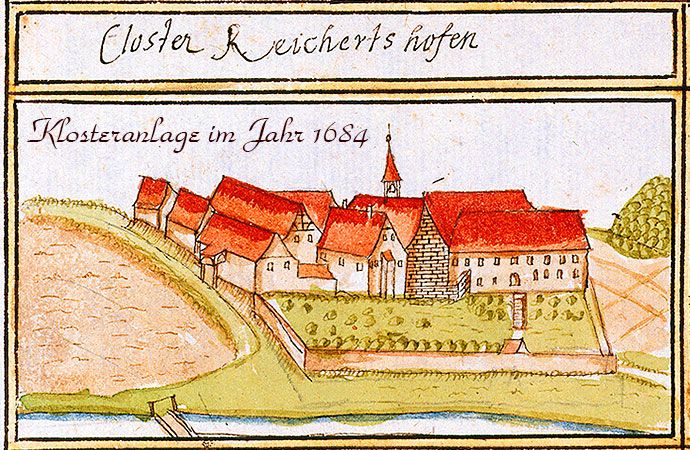 Closter Reichertshofen
Klosteranlage im Jahr 1684